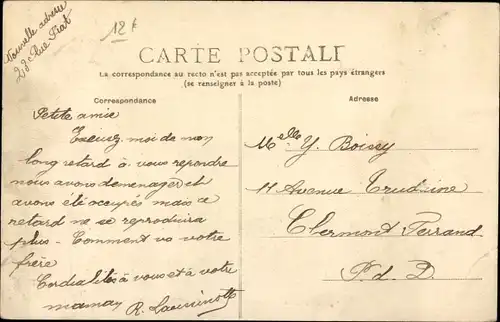 Nouvelle adresse
23 Rue
12f
CARTE POSTALE
La correspondance au recto n'est pas acceptée par tous les pays étrangers
(se renseigner à la poste)
Correspondance
Adresse
Petite amie
Excusez moi de mon
long retard à vous repondre
nous avons demenager et
avons été occupés mais ce
retard ne se reproduira
plus - Comment va votre
frère
Cordialités à vous et à votre
maman R.
Melle Y. Boissy
11 Avenue Trudaine
Clermont Ferrand
P. d. D.